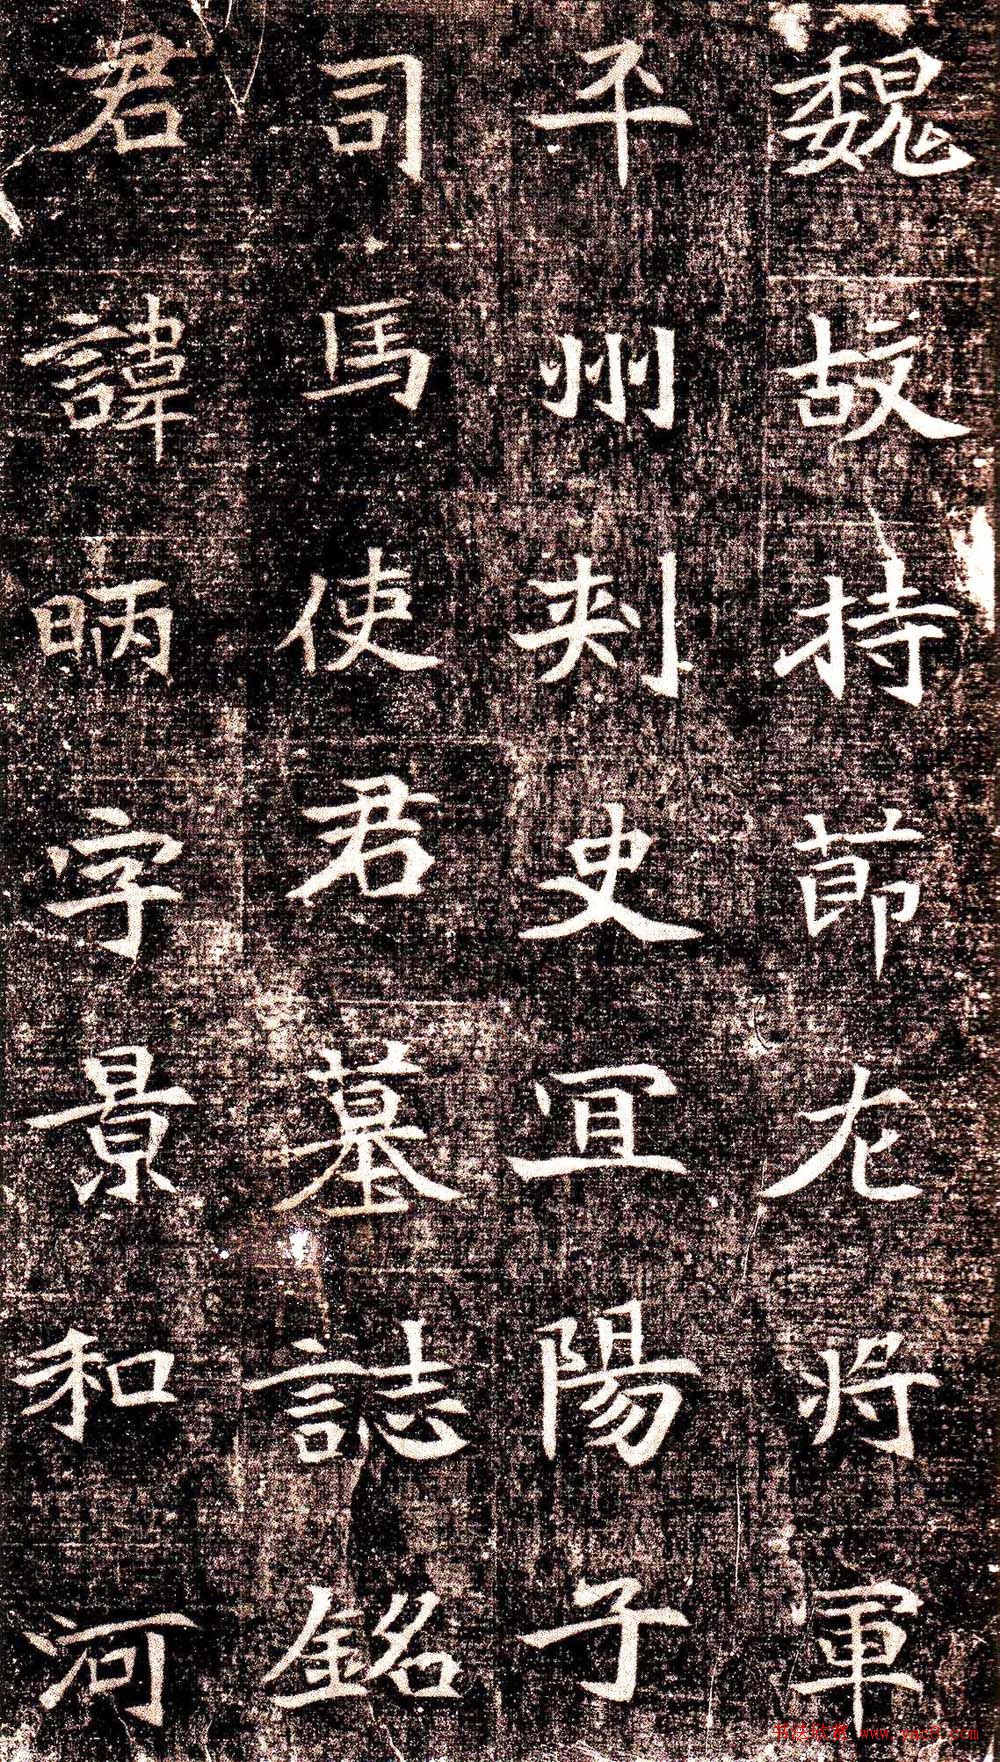 魏故持莭左将軍
平州刾史冝陽子
司馬使君墓誌銘
君諱昞字景和河
书法欣赏 www.yac8.com